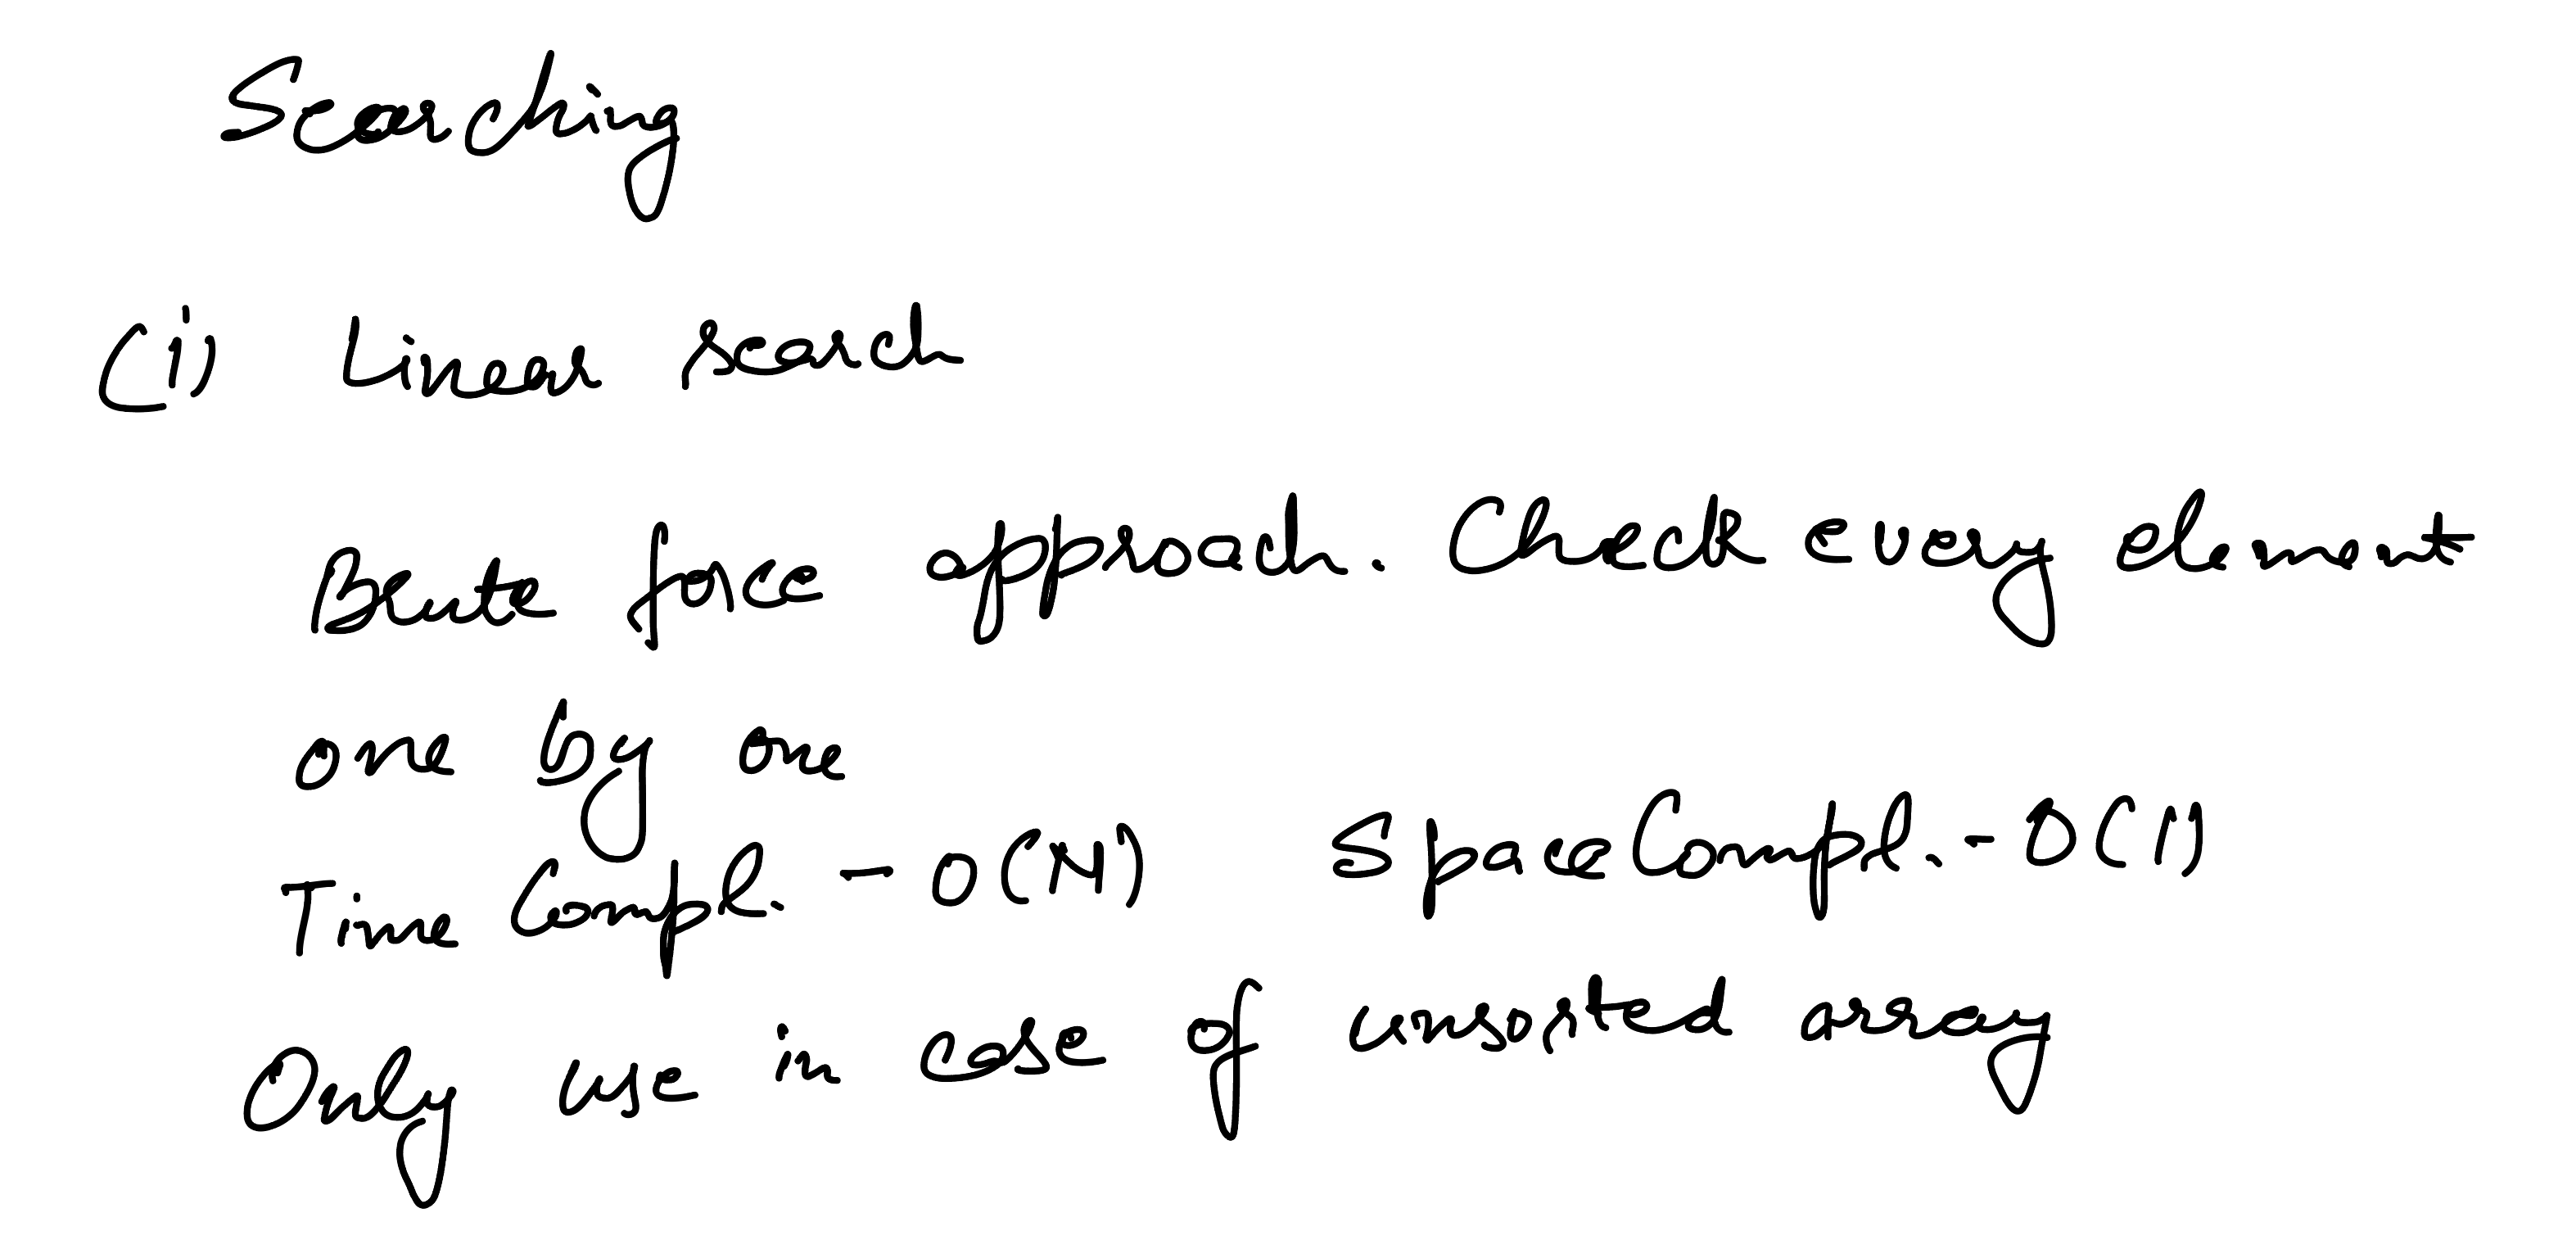 Searching
(i) Linear search
Brute force approach. Check every element
one by one
Time Compl. - O(N) Space Compl. - O(1)
Only use in case of unsorted array